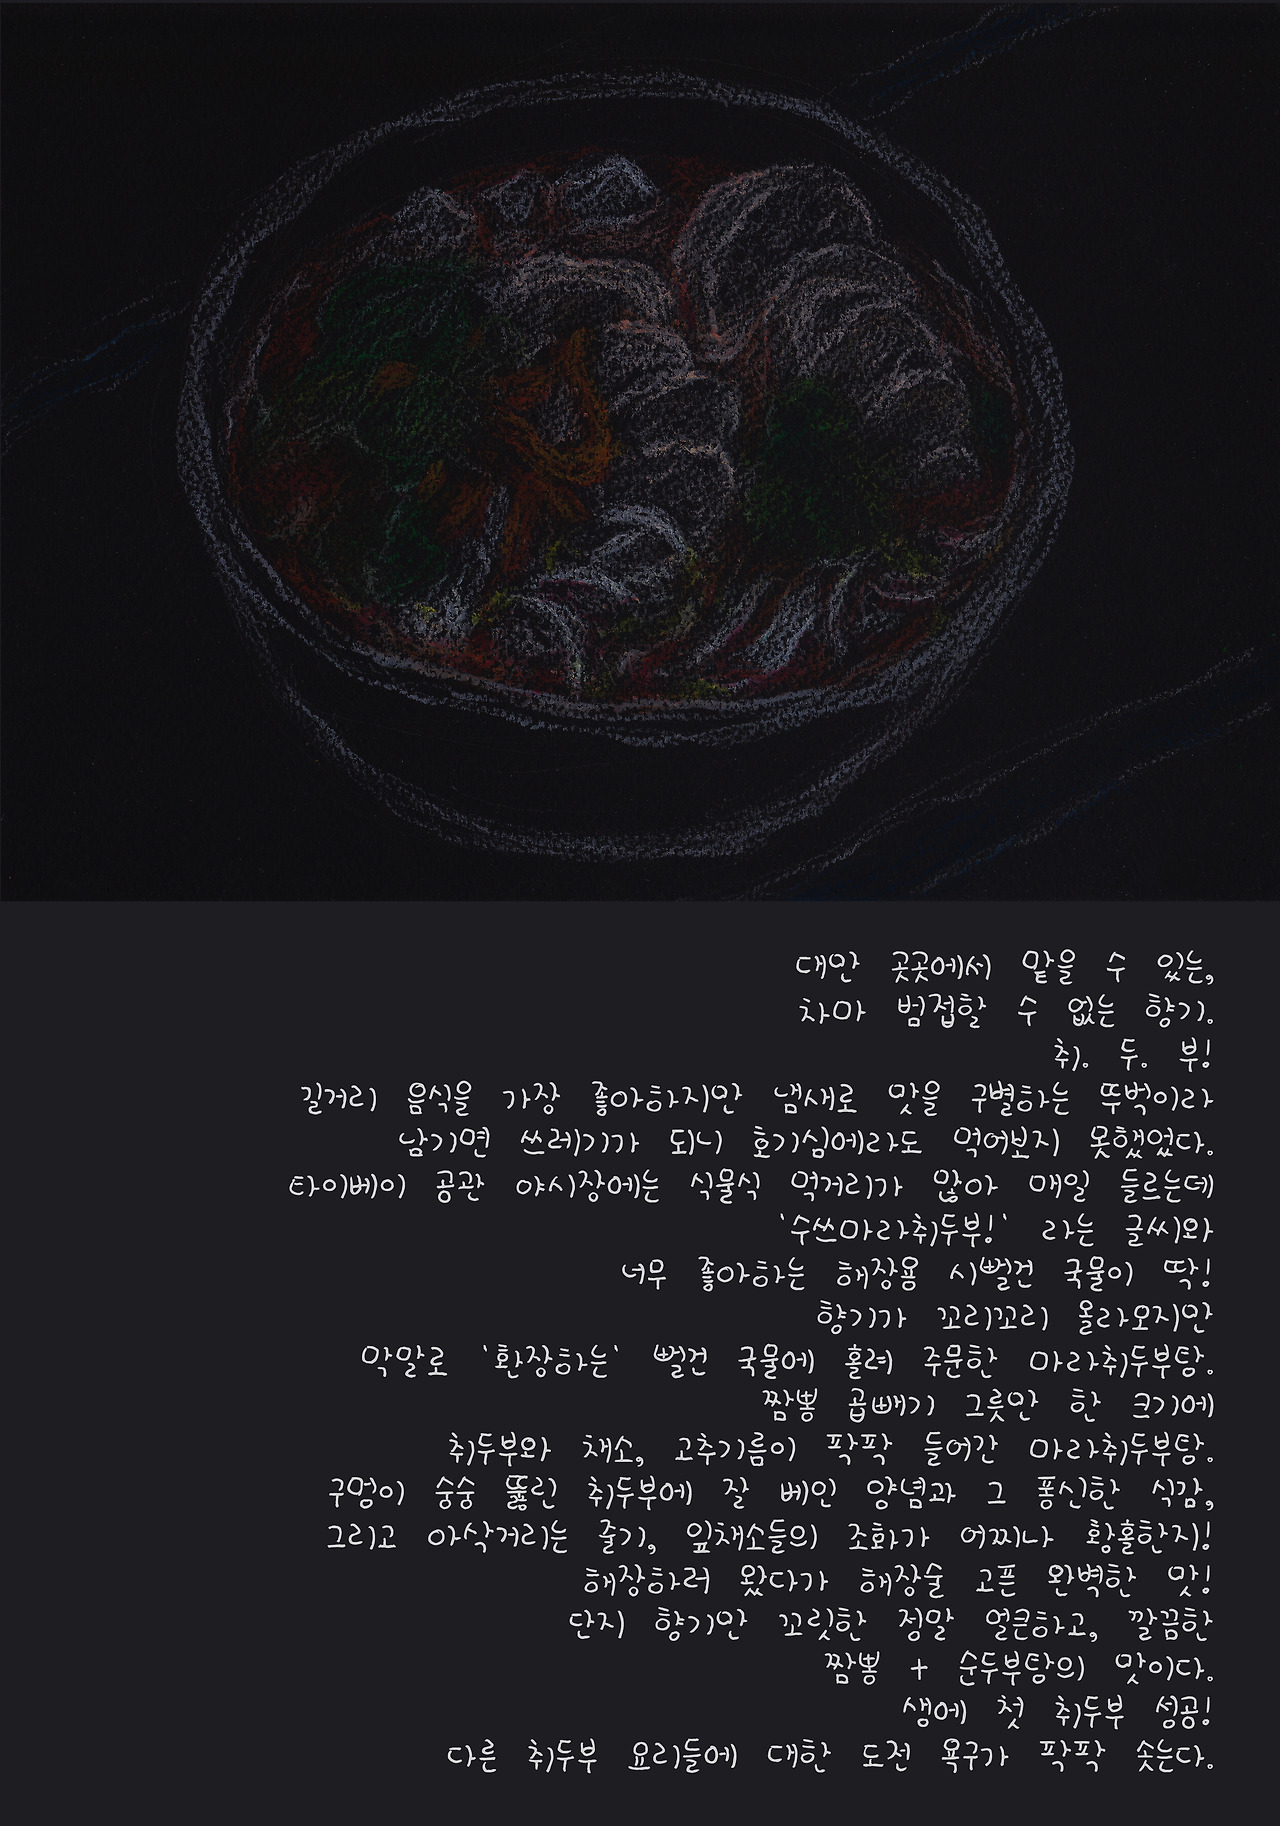 대만 곳곳에서 맡을 수 있는,
차마 범접할 수 없는 향기.
취. 두. 부!
길거리 음식을 가장 좋아하지만 냄새로 맛을 구별하는 뚜벅이라
남기면 쓰레기가 되니 호기심에라도 먹어보지 못했었다.
타이베이 공관 야시장에는 식물식 먹거리가 많아 매일 들르는데
'수쓰마라취두부!' 라는 글씨와
너무 좋아하는 해장용 시뻘건 국물이 딱!
향기가 꼬리꼬리 올라오지만
막말로 '환장하는' 뻘건 국물에 홀려 주문한 마라취두부탕.
짬뽕 곱빼기 그릇만 한 크기에
취두부와 채소, 고추기름이 팍팍 들어간 마라취두부탕.
구멍이 숭숭 뚫린 취두부에 잘 베인 양념과 그 퐁신한 식감,
그리고 아삭거리는 줄기, 잎채소들의 조화가 어찌나 황홀한지!
해장하러 왔다가 해장술 고픈 완벽한 맛!
단지 향기만 꼬릿한 정말 얼큰하고, 깔끔한
짬뽕 + 순두부탕의 맛이다.
생에 첫 취두부 성공!
다른 취두부 요리들에 대한 도전 욕구가 팍팍 솟는다.